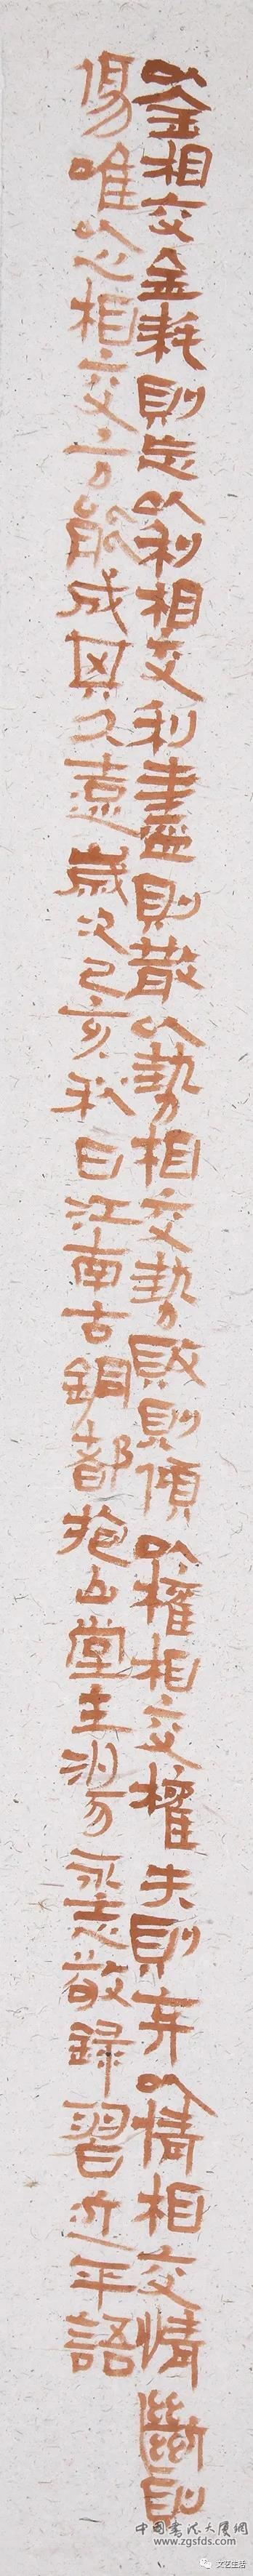 以金相交金耗則忘以利相交利盡則散以勢相交勢敗則傾以權相交權失則弃以情相交情斷則
傷唯以心相交方能成其久遠歲次己亥秋日江南古銅都抱山堂主湯永志敬錄習近平語
中國書法大廈網
www.zgsfds.com
文艺生活